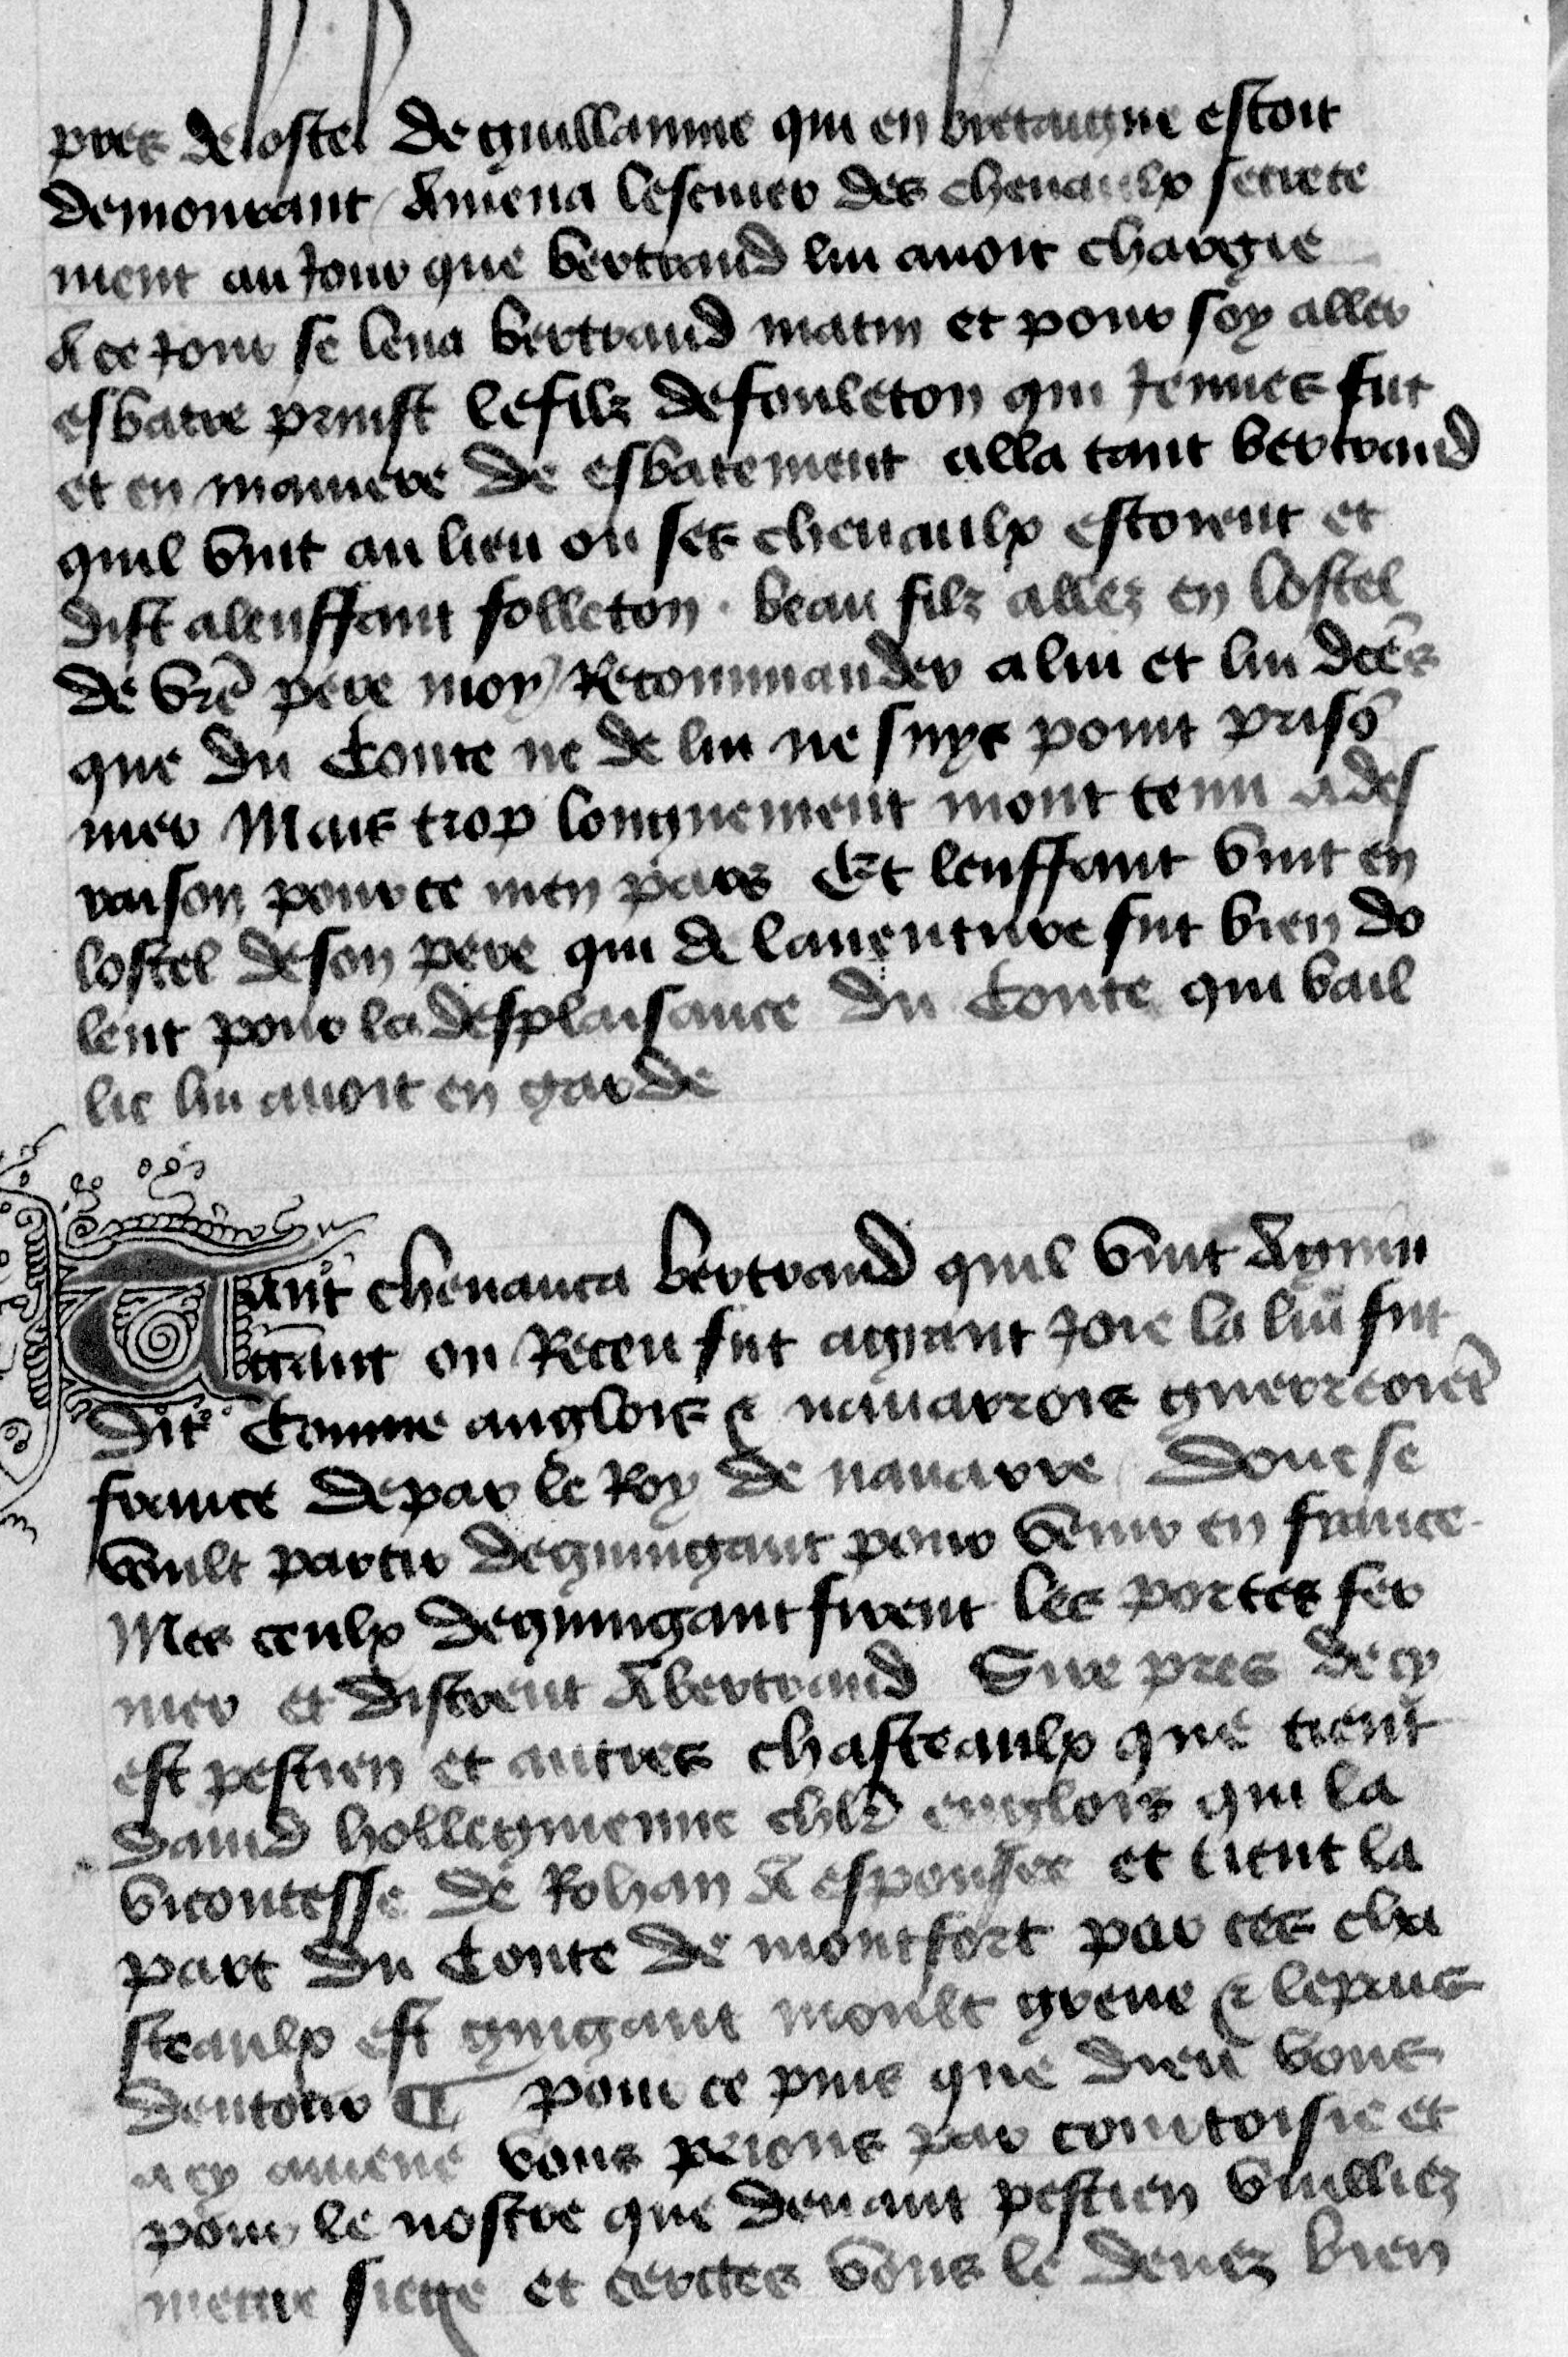 pres de lostel de guillaume qui en bretaigne estoit
demourant Amena lescuier des cheuaulx secrete
ment au Jour que bertrand lui auoit chargie
A ce Jour se leua bertrand matin et pour soy aller
esbatre prinst le filz de fouleton qui Jeunes fut
et en maniere de esbatement alla tant bertrand
quil vint au lieu ou ses cheuaulx estoient et
dist alenffant folleton . beau filz allez en lostel
de vrē pere moy Recommander a lui et lui dctēs
que du Conte ne de lui ne suys point prisō
nier Mais trop longuement mont tenu a des
raison pour ce men pars Et lenffant vint en
lostel de son pere qui de lauenture fut bien do
lent pour la desplaisance du Conte qui bail
lie lui auoit en garde
Tant cheuauca bertrand quil vint A guin
gant ou Receu fut a grant Joie la lui fut
dit Comme anglois & nauarrois guerreoiēt
france de par le Roy de nauarre Donc se
voult partir de guingant pour venir en france
Mes ceulx de guingant firent les portes fer
mer et distrent A bertrand Sire pres de cy
est pestien et autres chasteaulx que tient
dauid hollegmenne chlr englois qui la
vicontesse de Rohan A espousee et tient la
part du Conte de montfort par ces cha
steaulx est guigant moult greue & le pais
dentour ¶ pour ce puis que dieu vous
a cy amene vous prions par courtoisie et
pour le nostre que deuant pestien vuilliez
mettre siege et certes vous le deuez bien